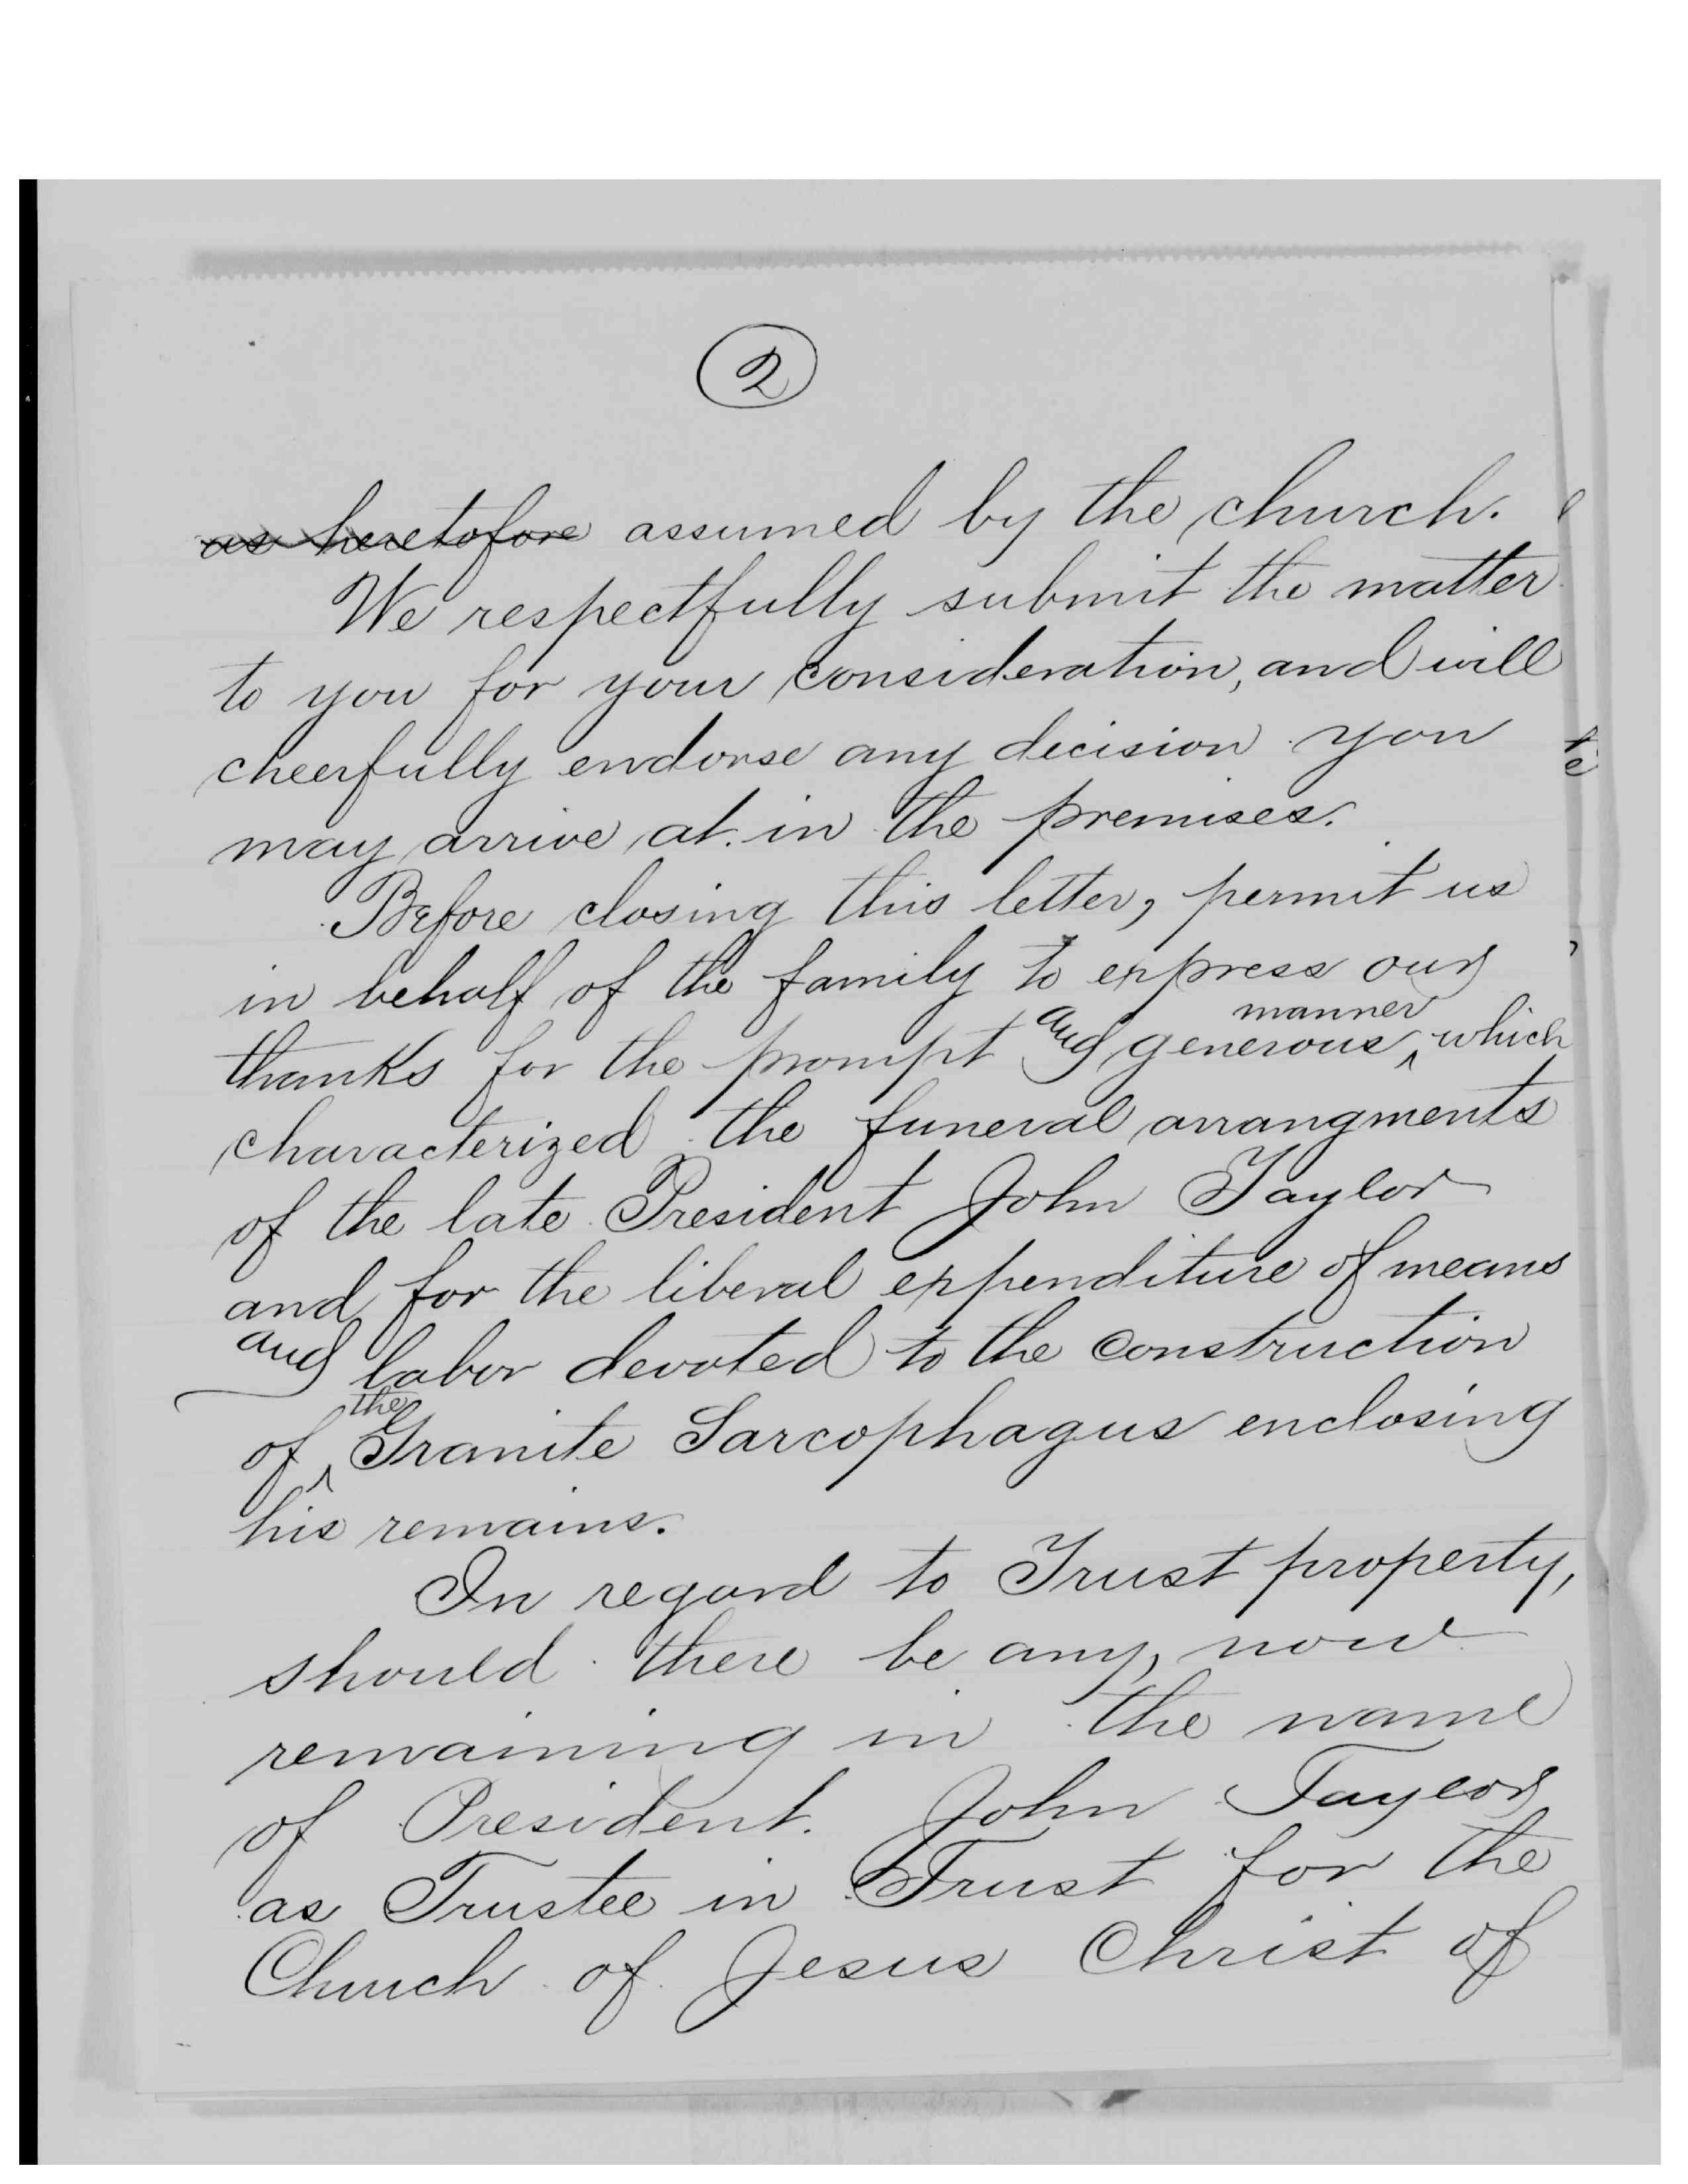 2
as heretofore assumed by the church.
We respectfully submit the matter
to you for your consideration, and will
cheerfully endorse any decision you
may arrive at in the premises.
Before closing this letter, permit us
in behalf of the family to express our
thanks for the prompt and generous manner which
characterized the funeral arrangments
of the late President John Taylor
and for the liberal expenditure of means
and labor devoted to the construction
of the Granite Sarcophagus enclosing
his remains.
In regard to Trust property,
should there be any, now
remaining in the name
of President John Taylor
as Trustee in Trust for the
Church of Jesus Christ of